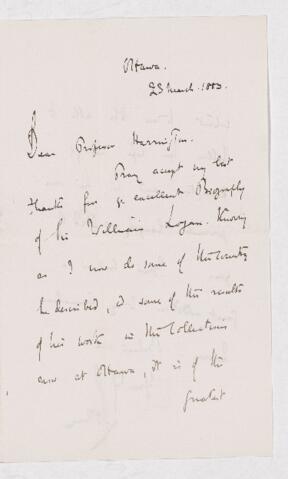 Ottawa.
23 March. 1883.
Dear Professor Harrington.
Pray accept my best
thanks for yr excellent Biography
of Sir William Logan. Knowing
as I now do some of the Country
he described, & some of the results
of his work in the Collections
now at Ottawa, it is of the
greatest